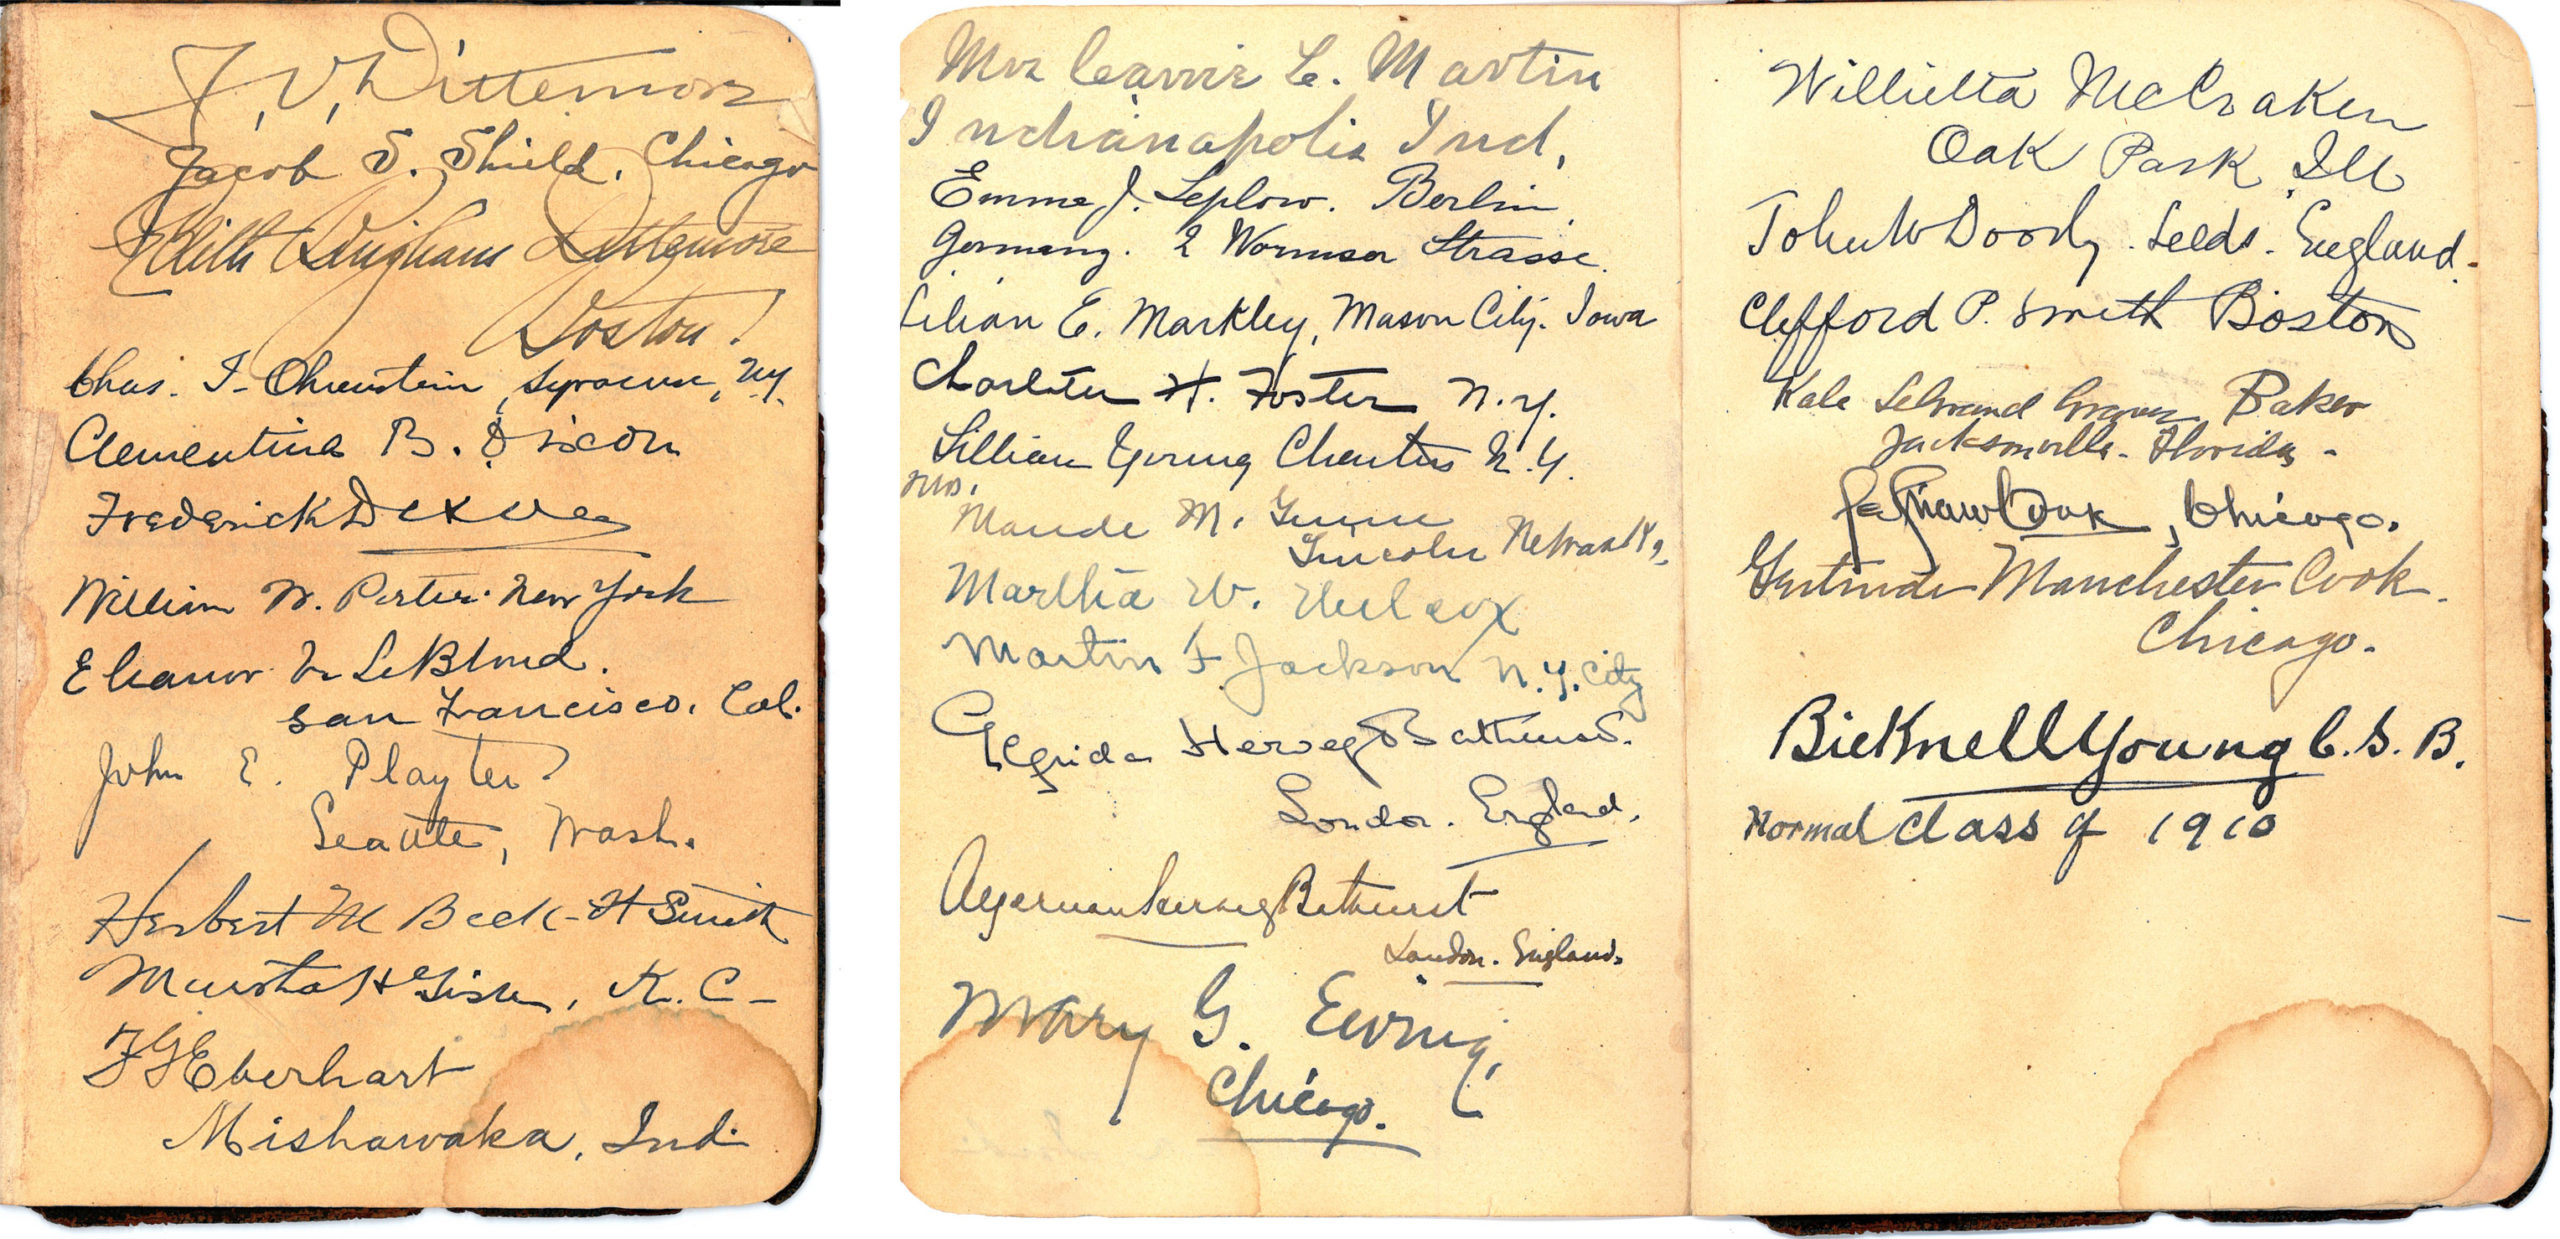 J. V. Dittemore
Jacob S. Shield. Chicago
Edith Bingham Dittemore
Boston.
Chas. I. Ohrenstein, Syracuse, N.Y.
Clementina B. Dixon
Frederick Dixon
William W. Porter. New York
Eleanor LeBlond.
San Francisco. Cal.
John E. Playter
Seattle, Wash.
Herbert M Beck - Ft Smith
H , K. C -
F G Eberhart
Mishawaka, Ind.
Mrs Carrie L. Martin
Indianapolis Ind.
Emma J. Leplow. Berlin,
Germany. 2 Wormser Strasse.
Lilian E. Markley, Mason City. Iowa
H. Foster N.Y.
Lillian Young N.Y.
Mrs.
Maude M.
Lincoln Nebraska.
Martha W. Wilcox
Martin F. Jackson N.Y. City
Hervey Bathurst.
London. England.
Hervey Bathurst
London. England.
Mary G. Ewing,
Chicago.
Willietta McCraken
Oak Park, Ill
John W Doorly. Leeds. England.
Clifford P. Smith Boston
Baker
Jacksonville. Florida.
Cook, Chicago.
Gertrude Manchester Cook.
Chicago.
Bicknell Young C. S. B.
Normal Class of 1910